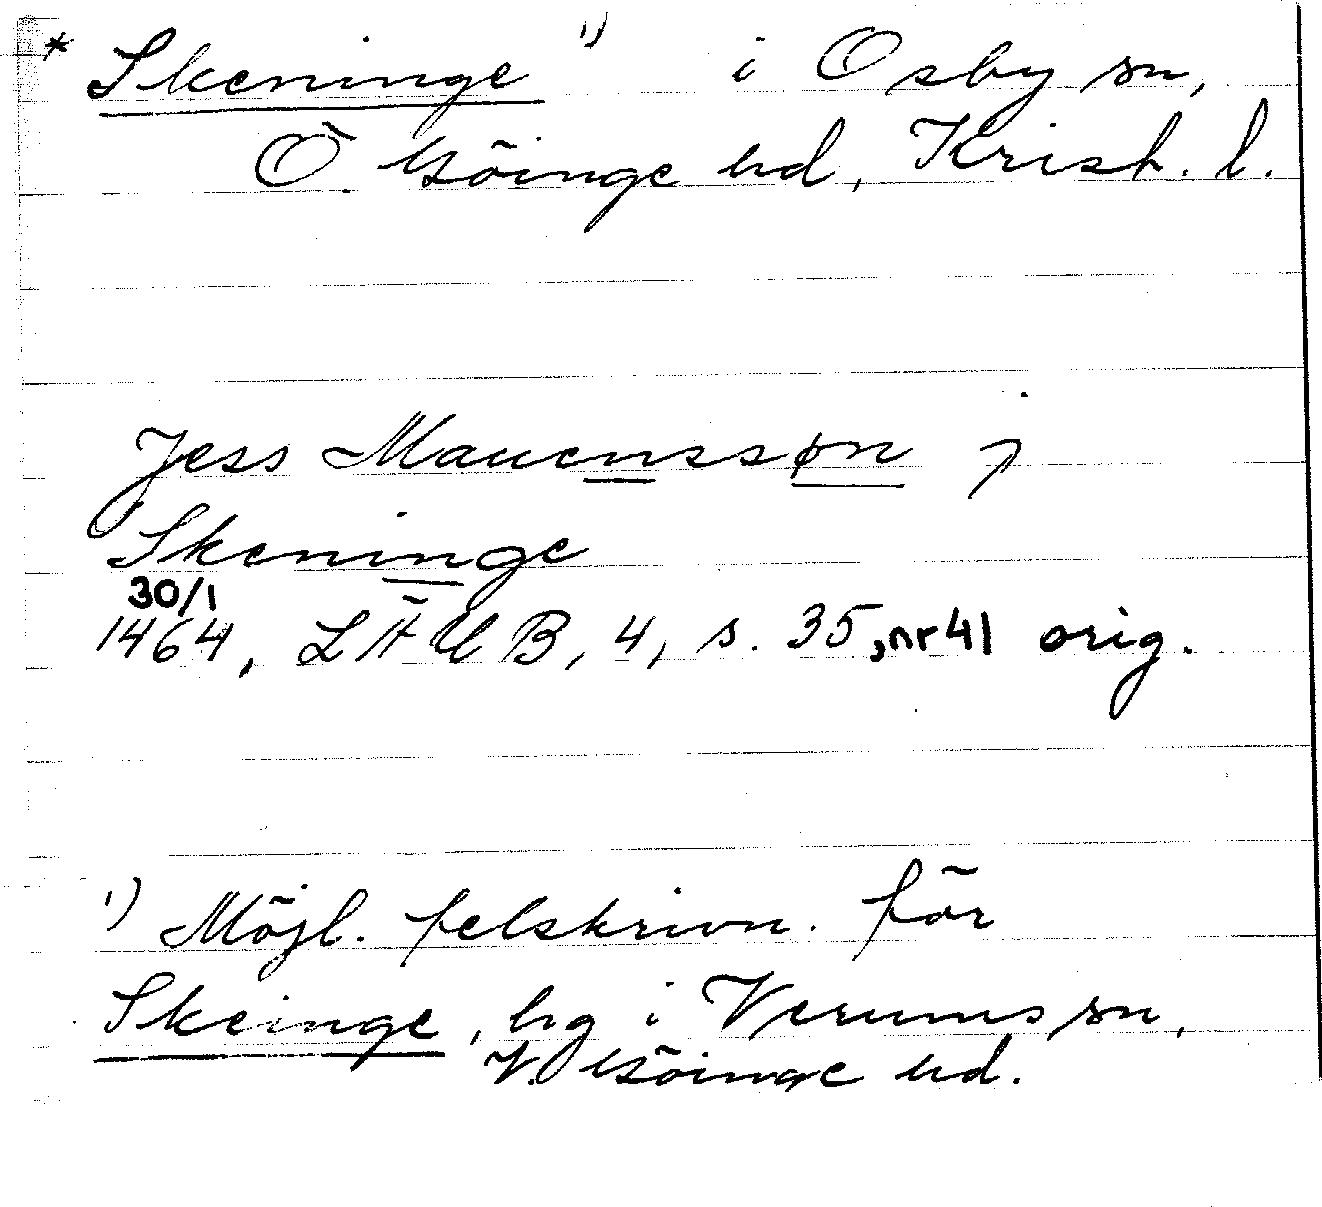 * Skeninge 1) i Osby sn,
Ö. Göinge hd, Krist. l.
Jess Mauenssøn j
Skeninge
30/1
1464, LÄUB, 4, s. 35, nr 41 orig.
1) Möjl. felskrivn. för
Skeinge, hg i Verums sn,
V. Göinge hd.